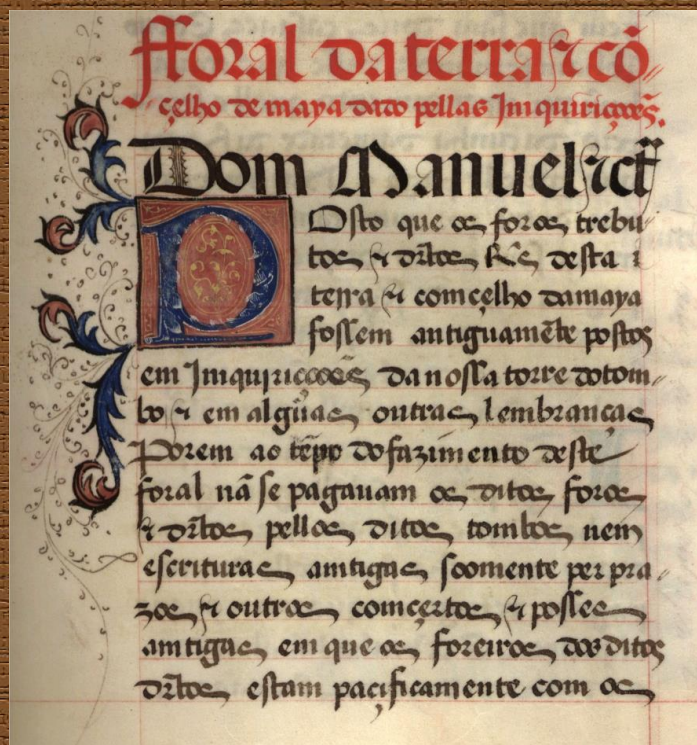 fforal da terra & cõ
çelho de maya dato pellas Jmquiriçoões.
Dom Manuel &ct
Posto que os foros trebu
tos & dr̃tos Rs desta
terra & comçelho damaya
fossem antiguamẽte postos
em Jmquiriçoões da nossa torre do tom
bo & em algũas outras lembranças
Porem ao tẽpo do fazimento deste
foral nã se pagauam os ditos foros
& dr̃tos pellos ditos tombos nem
escrituras amtigas soomente per pra
zos & outros comçertos & posses
amtigas em que os foreiros dos ditos
dr̃tos estam paçificamente com os